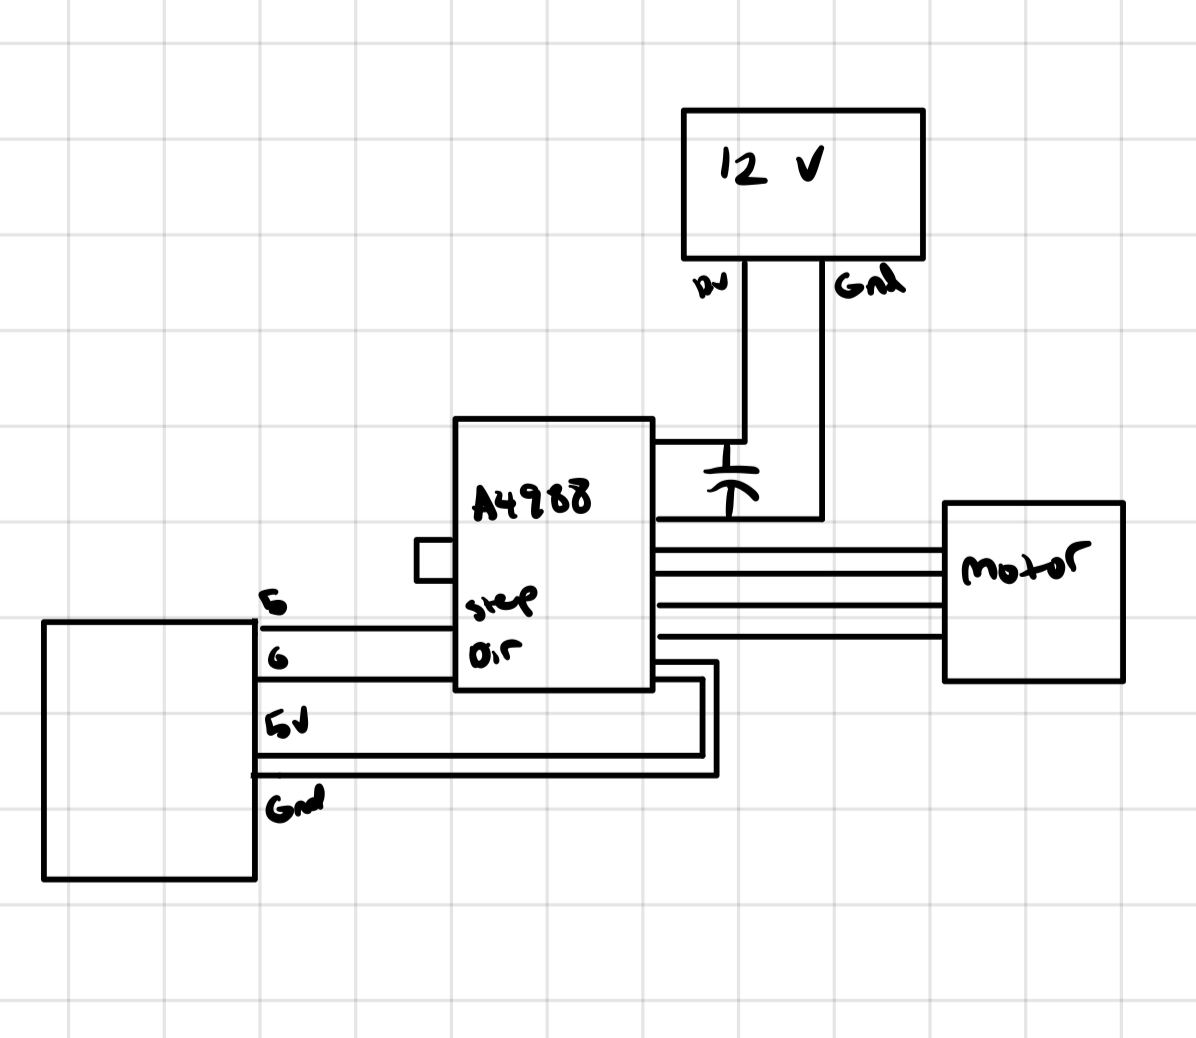 12 V
12V
Gnd
A4988
step
Dir
motor
5
6
5V
Gnd